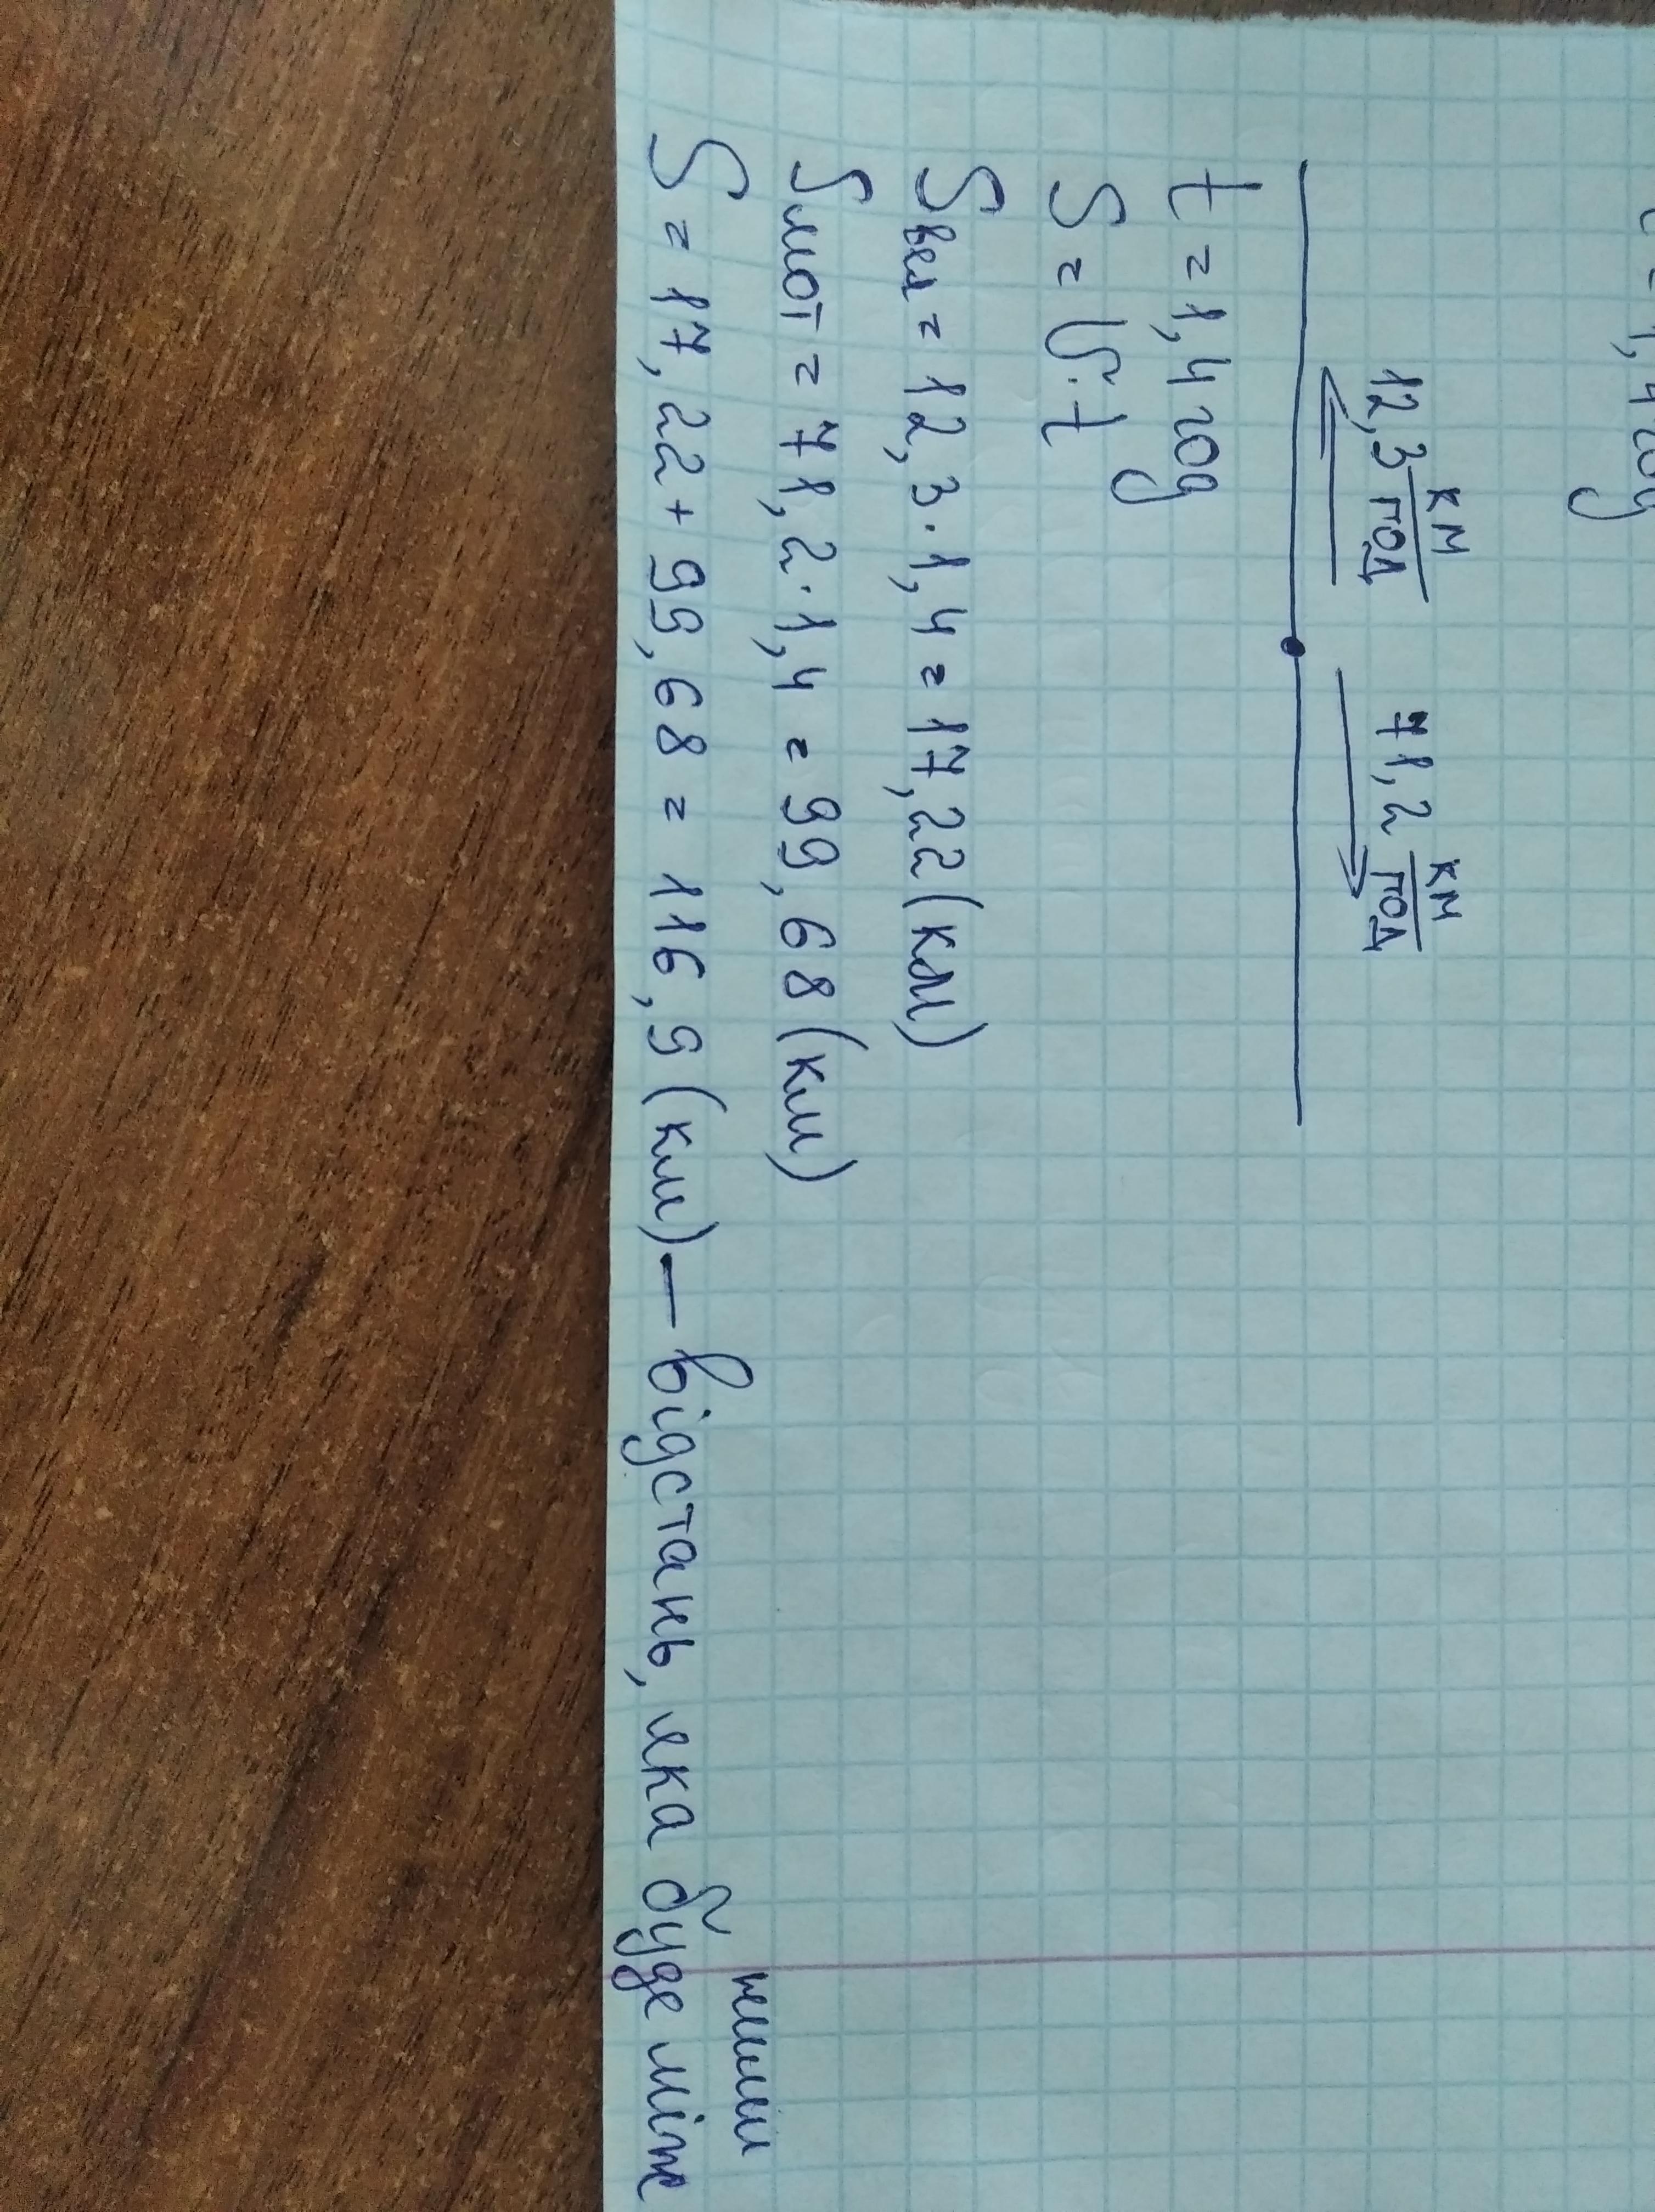 t = 1,4 год
12,3 км/год 71,2 км/год
t = 1,4 год
S = V · t
Sвел = 12,3 · 1,4 = 17,22 (км)
Sмот = 71,2 · 1,4 = 99,68 (км)
S = 17,22 + 99,68 = 116,9 (км) — відстань, яка буде між
ними